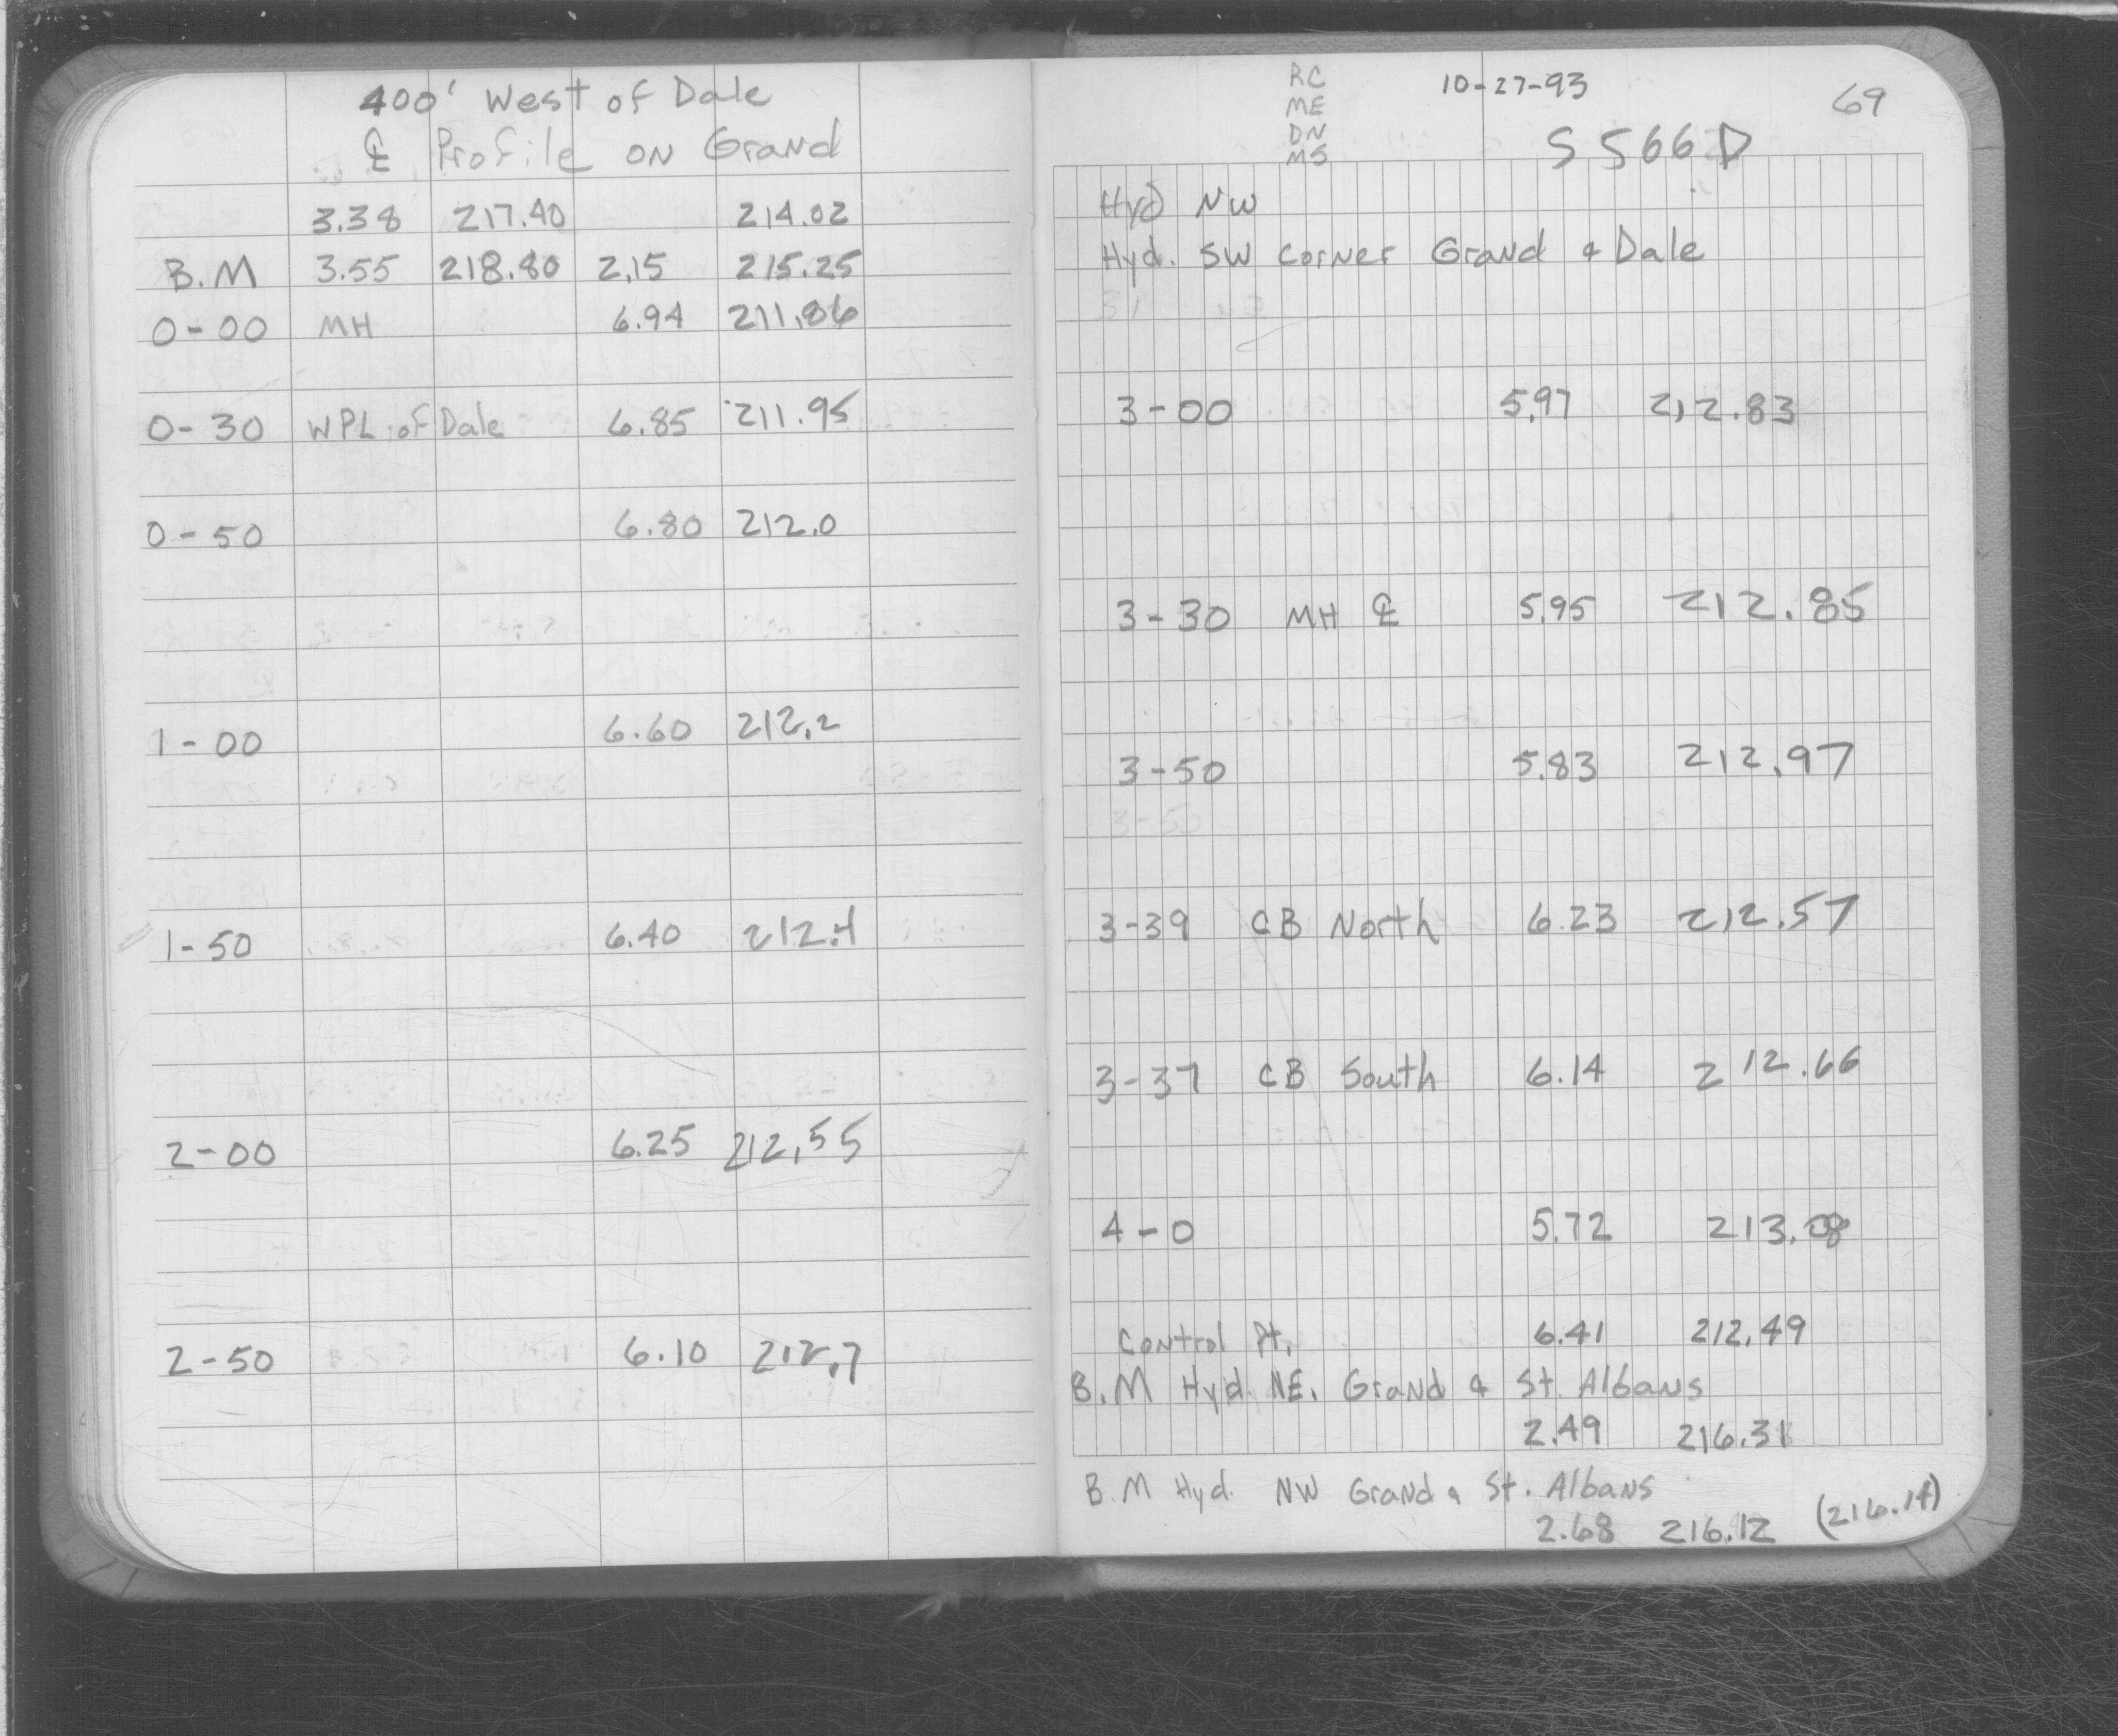 400' West of Dale
℄ Profile on Grand
3.38 217.40 214.02
B.M 3.55 218.80 2.15 215.25
0-00 MH 6.94 211.86
0-30 WPL of Dale 6.85 211.95
0-50 6.80 212.0
1-00 6.60 212.2
1-50 6.40 212.4
2-00 6.25 212.55
2-50 6.10 212.7
RC 10-27-93 69
ME
DN S 566 D
MS
Hyd NW
Hyd. SW Corner Grand & Dale
3-00 5.97 212.83
3-30 MH ℄ 5.95 212.85
3-50 5.83 212.97
3-50
3-39 CB North 6.23 212.57
3-37 CB South 6.14 212.66
4-0 5.72 213.08
Control Pt. 6.41 212.49
B.M Hyd. NE. Grand & St. Albans
2.49 216.31
B.M Hyd. NW Grand & St. Albans
2.68 216.12 (216.14)